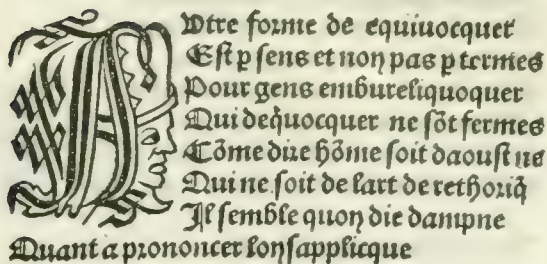 AUtre forme de equiuocquer
Est p̱ sens et non pas p̱ termes
Pour gens embureliquoquer
Qui deq̄uocquer ne sõt fermes
Cõme dire hõme soit daoust ne
Qui ne soit de lart de rethoriq̃
Il semble quon die dampne
Quant a prononcer lon sapplicque